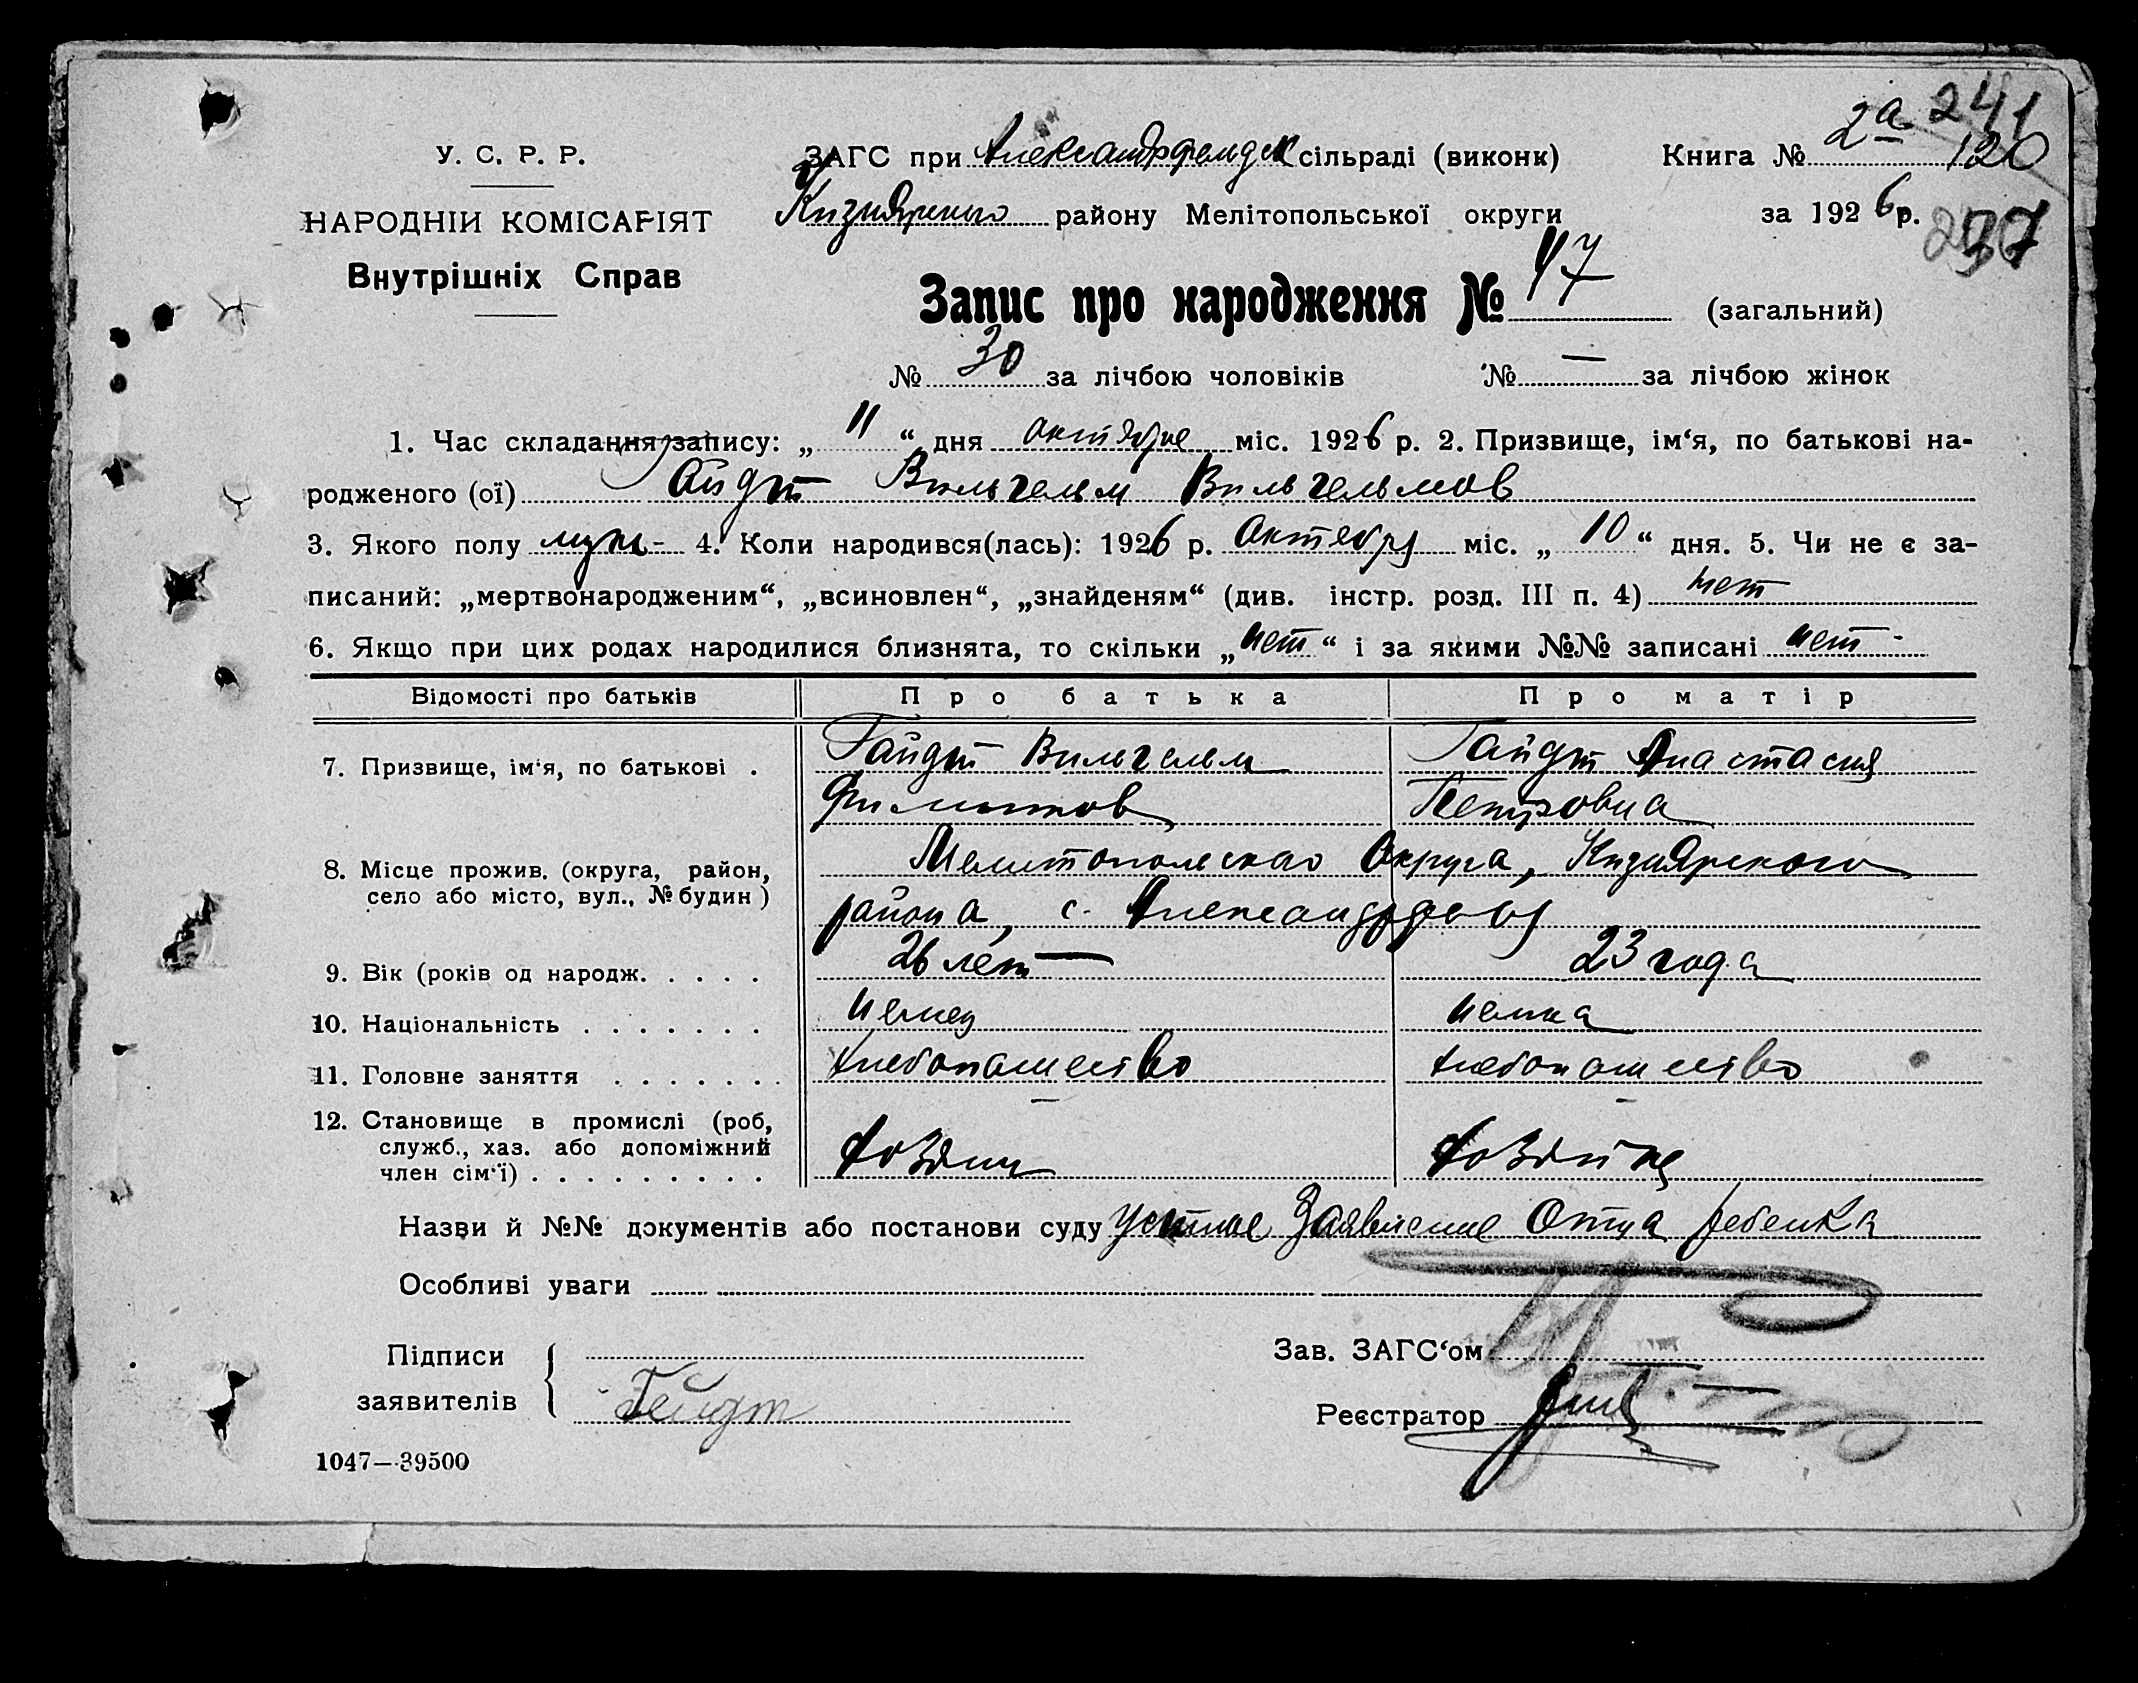 2а 241
У. С. Р. Р. ЗАГС при Александрфельдск сільраді (виконк) Книга № 120
НАРОДНІЙ КОМІСАРІЯТ Кизиярского району Мелітопольської округи за 1926 р. 237
Внутрішніх Справ
Запис про народження № 47 (загальний)
№ 30 за лічбою чоловіків № — за лічбою жінок
1. Час складання запису: „ 11 “ дня октября міс. 1926 р. 2. Призвище, ім‘я, по батькові на-
родженого (ої) Гайдт Вильгельм Вильгельмов
3. Якого полу муж- 4. Коли народився(лась): 1926 р. Октября міс. „ 10 “ дня. 5. Чи не є за-
писаний: „мертвонародженим“, „всиновлен“, „знайденям“ (див. інстр. розд. III п. 4) нет
6. Якщо при цих родах народилися близнята, то скільки „ нет “ і за якими №№ записані нет -
Відомості про батьків Про батька Про матір
7. Призвище, ім‘я, по батькові . Гайдт Вильгельм Гайдт Анастасия
Филиппов Петровна
8. Місце прожив. (округа, район, Мелитопольского Округа, Кизиярского
село або місто, вул., № будин ) района, с.
9. Вік (років од народж. . . . . 26 лет 23 года
10. Національність . . . . . . . немец немка
11. Головне заняття . . . . . . . хлебопашество хлебопашество
12. Становище в промислі (роб,
служб., хаз. або допоміжний Хозяин Хозяйка
член сім‘ї) . . . . . . . . .
Назви й №№ документів або постанови суду Устное Заявление Отца ребенка
Особливі уваги
Підписи Зав. ЗАГС‘ом
заявителів Гейдт Реєстратор
1047—39500